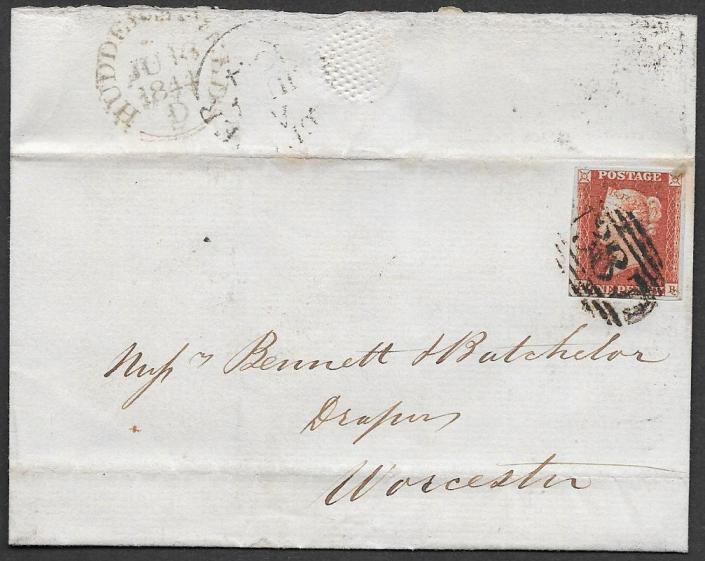 HUDDERSFIELD
1844
D
POSTAGE
ONE PENNY
R
Messrs Bennett & Batchelor
Drapers
Worcester